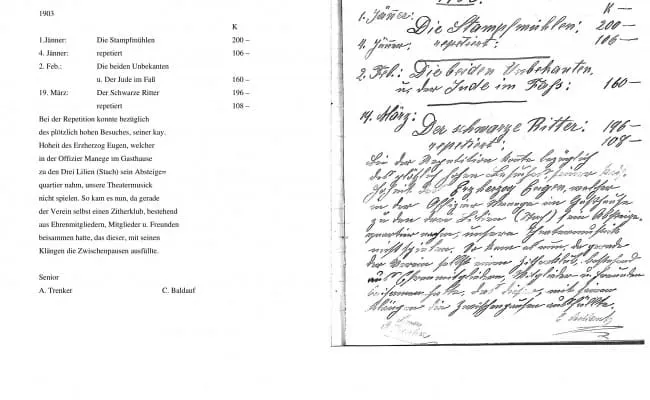 1903
K
1.Jänner: Die Stampfmühlen 200 –
4. Jänner: repetiert 106 –
2. Feb.: Die beiden Unbekanten
u. Der Jude im Faß 160 –
19. März: Der Schwarze Ritter 196 –
repetiert 108 –
Bei der Repetition konnte bezüglich
des plötzlich hohen Besuches, seiner kay.
Hoheit des Erzherzog Eugen, welcher
in der Offizier Manege im Gasthause
zu den Drei Lilien (Stach) sein Absteige=
quartier nahm, unsere Theatermusik
nicht spielen. So kam es nun, da gerade
der Verein selbst einen Zitherklub, bestehend
aus Ehrenmitgliedern, Mitglieder u. Freunden
beisammen hatte, das dieser, mit seinen
Klängen die Zwischenpausen ausfüllte.
Senior
A. Trenker C. Baldauf
1903.
K –
1. Jänner: Die Stampfmühlen: 200 –
4. Jänner, repetiert: 106 –
2. Feb.: Die beiden Unbekanten,
u. der Jude im Faß: 160 –
19. März: Der schwarze Ritter: 196 –
repetiert: 108 –
Bei der Repetition konte bezüglich
des plötzlich hohen Besuches, seiner kay.
Hoheit des Erzherzog Eugen, welcher
in der Offizier Manege im Gasthause
zu den drei Lilien (Stach) sein Absteige=
quartier nahm, unsere Theatermusik
nicht spielen. So kam es nun, da gerade
der Verein selbst einen Zitherklub, bestehend
aus Ehrenmitgliedern, Mitglieder u. Freunden
beisammen hatte, das dieser, mit seinen
Klängen die Zwischenpausen ausfüllte.
Senior
A. Trenker